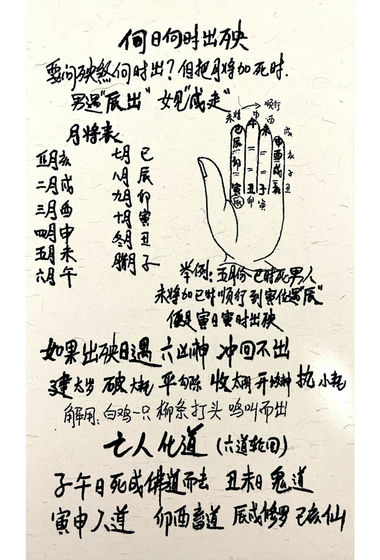 何日何时出殃
要问殃煞何时出？但把月将加死时.
男遇"辰出" 女见"戌走"
月将表
正月亥 七月巳
二月戌 八月辰
三月酉 九月卯
四月申 十月寅
五月未 冬月丑
六月午 腊月子
顺行
举例：五月份巳时死男人
未将加巳时顺行到寅位遇"辰"
便是寅日寅时出殃
如果出殃日遇 六凶神 冲回不出
建太岁 破大耗 平勾陈 收 开 执小耗
解用：白鸡一只 柳条打头 鸣叫而出
亡人化道（六道轮回）
子午日死成佛道而去 丑未日鬼道
寅申人道 卯酉畜道 辰戌修罗 己亥仙